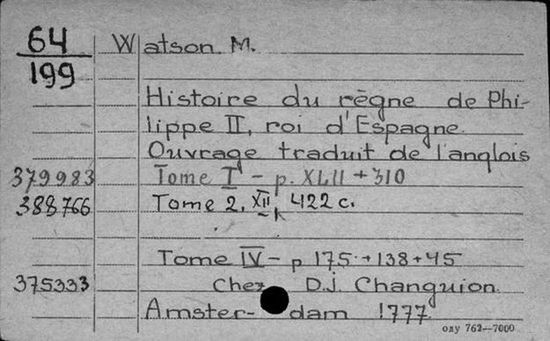 64
199
Watson M.
Histoire du règne de Phi-
lippe II, roi d'Espagne.
Ouvrage traduit de l'anglois
379983 Tome I - p. XLII + 310
388766 Tome 2. XII, 422 c.
Tome IV - p 175 + 138 + 45
375333 Chez D.j. Changuion.
Amster- dam 1777
олу 762—7000